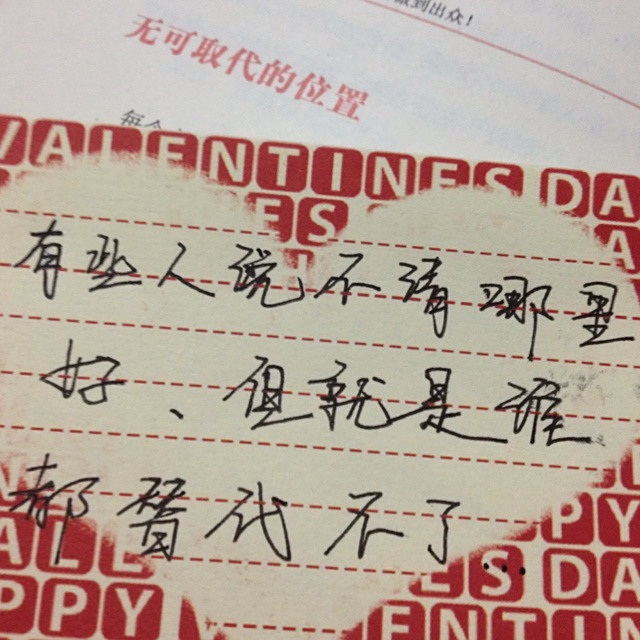 做到出众！
无可取代的位置
每个
VALENTINES DA
ES
有些人说不清哪里
好、但就是谁
都替代不了...
PY
ALLE
ES DA
PPY
ENTIN